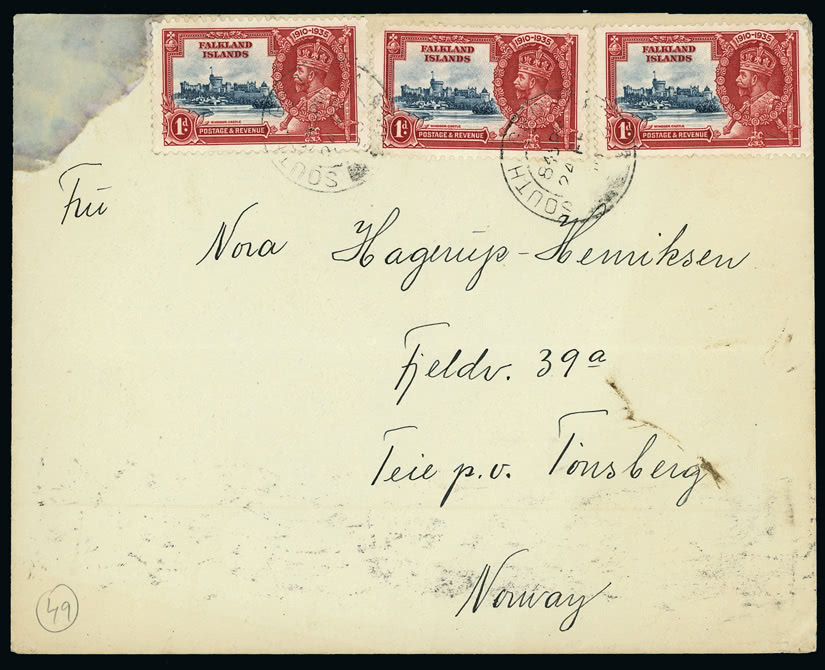 FALKLAND ISLANDS 1910-1935
WINDSOR CASTLE
1d POSTAGE & REVENUE
FALKLAND ISLANDS 1910-1935
WINDSOR CASTLE
1d POSTAGE & REVENUE
FALKLAND ISLANDS 1910-1935
WINDSOR CASTLE
1d POSTAGE & REVENUE
SOUTH
SOUTH
24 FE
Frü
Nora Hagerup-Henriksen
Fjeldv. 39a
Teie p.v. Tönsberg
Norway
49